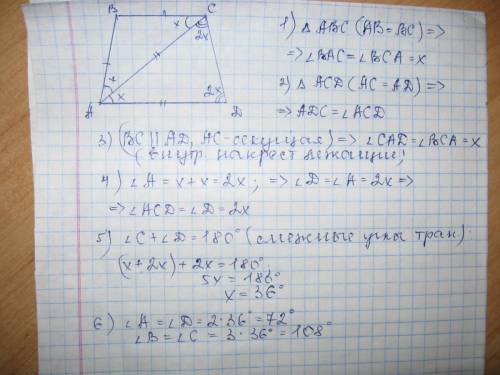 B
C
x
x
2x
x
x
2x
A
D
1) △ ABC (AB = BC) =>
=> ∠BAC = ∠BCA = x
2) △ ACD (AC = AD) =>
=> ADC = ∠ACD
3) (BC || AD, AC - секущая) => ∠CAD = ∠BCA = x
(внутр. накрест лежащие)
4) ∠A = x + x = 2x ; => ∠D = ∠A = 2x =>
=> ∠ACD = ∠D = 2x
5) ∠C + ∠D = 180° (смежные углы трап.)
(x + 2x) + 2x = 180°
5x = 180°
x = 36°
6) ∠A = ∠D = 2·36° = 72°
∠B = ∠C = 3·36° = 108°